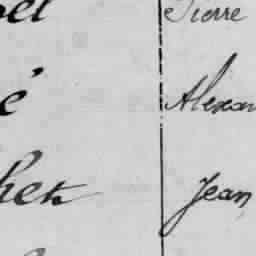 Pierre
é Alexan
het Jean